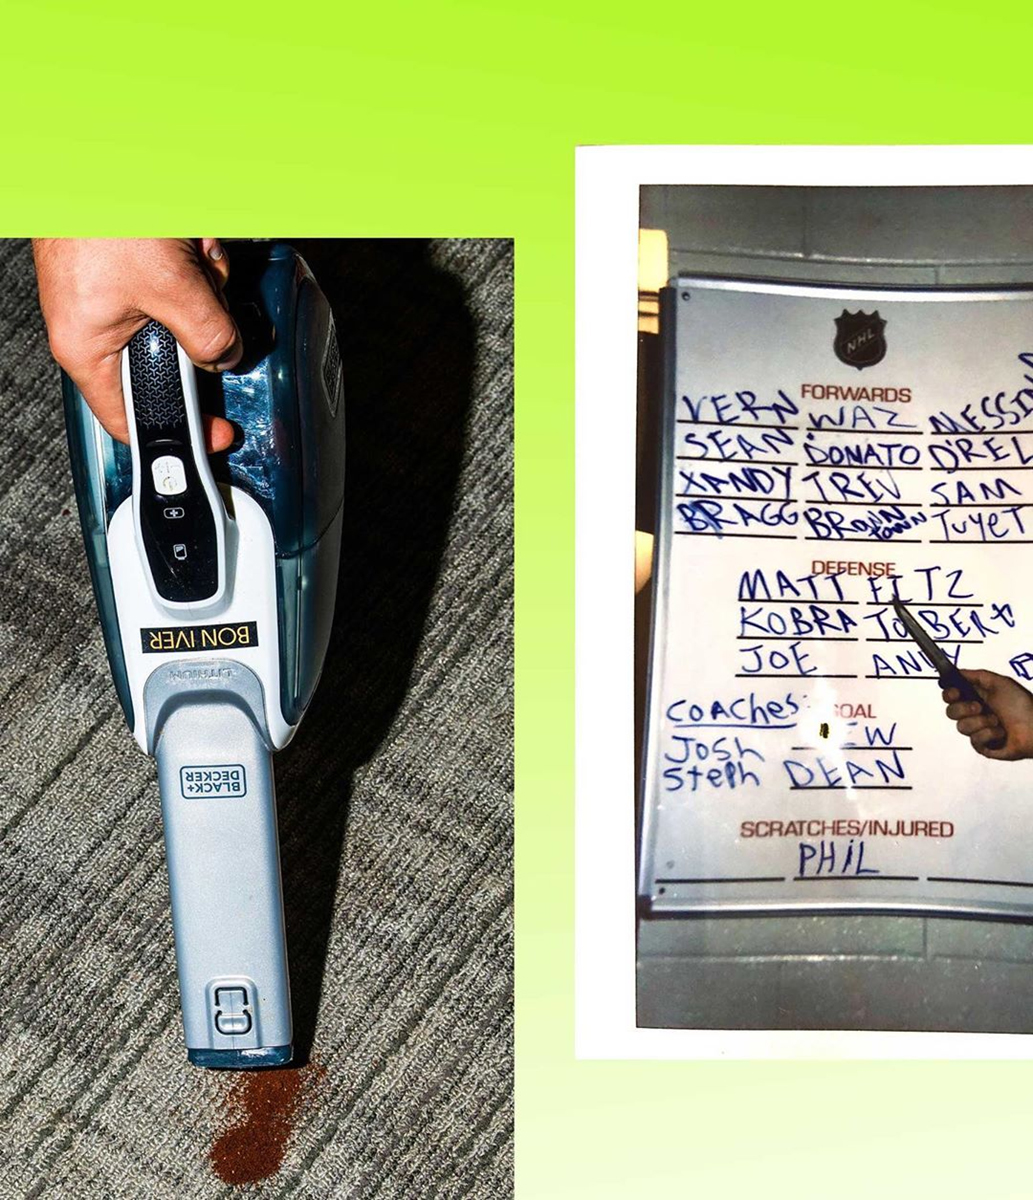 BON IVER
LITHIUM
BLACK+
DECKER
NHL
FORWARDS
VERN WAZ
SEAN DONATO
XANDY TREV SAM
BRAGG BROWNTOWN TUYET
DEFENSE
MATT FITZ
KOBRA TOLBERT
JOE ANDY
Coaches:
Josh
Steph DEAN
SCRATCHES/INJURED
PHIL